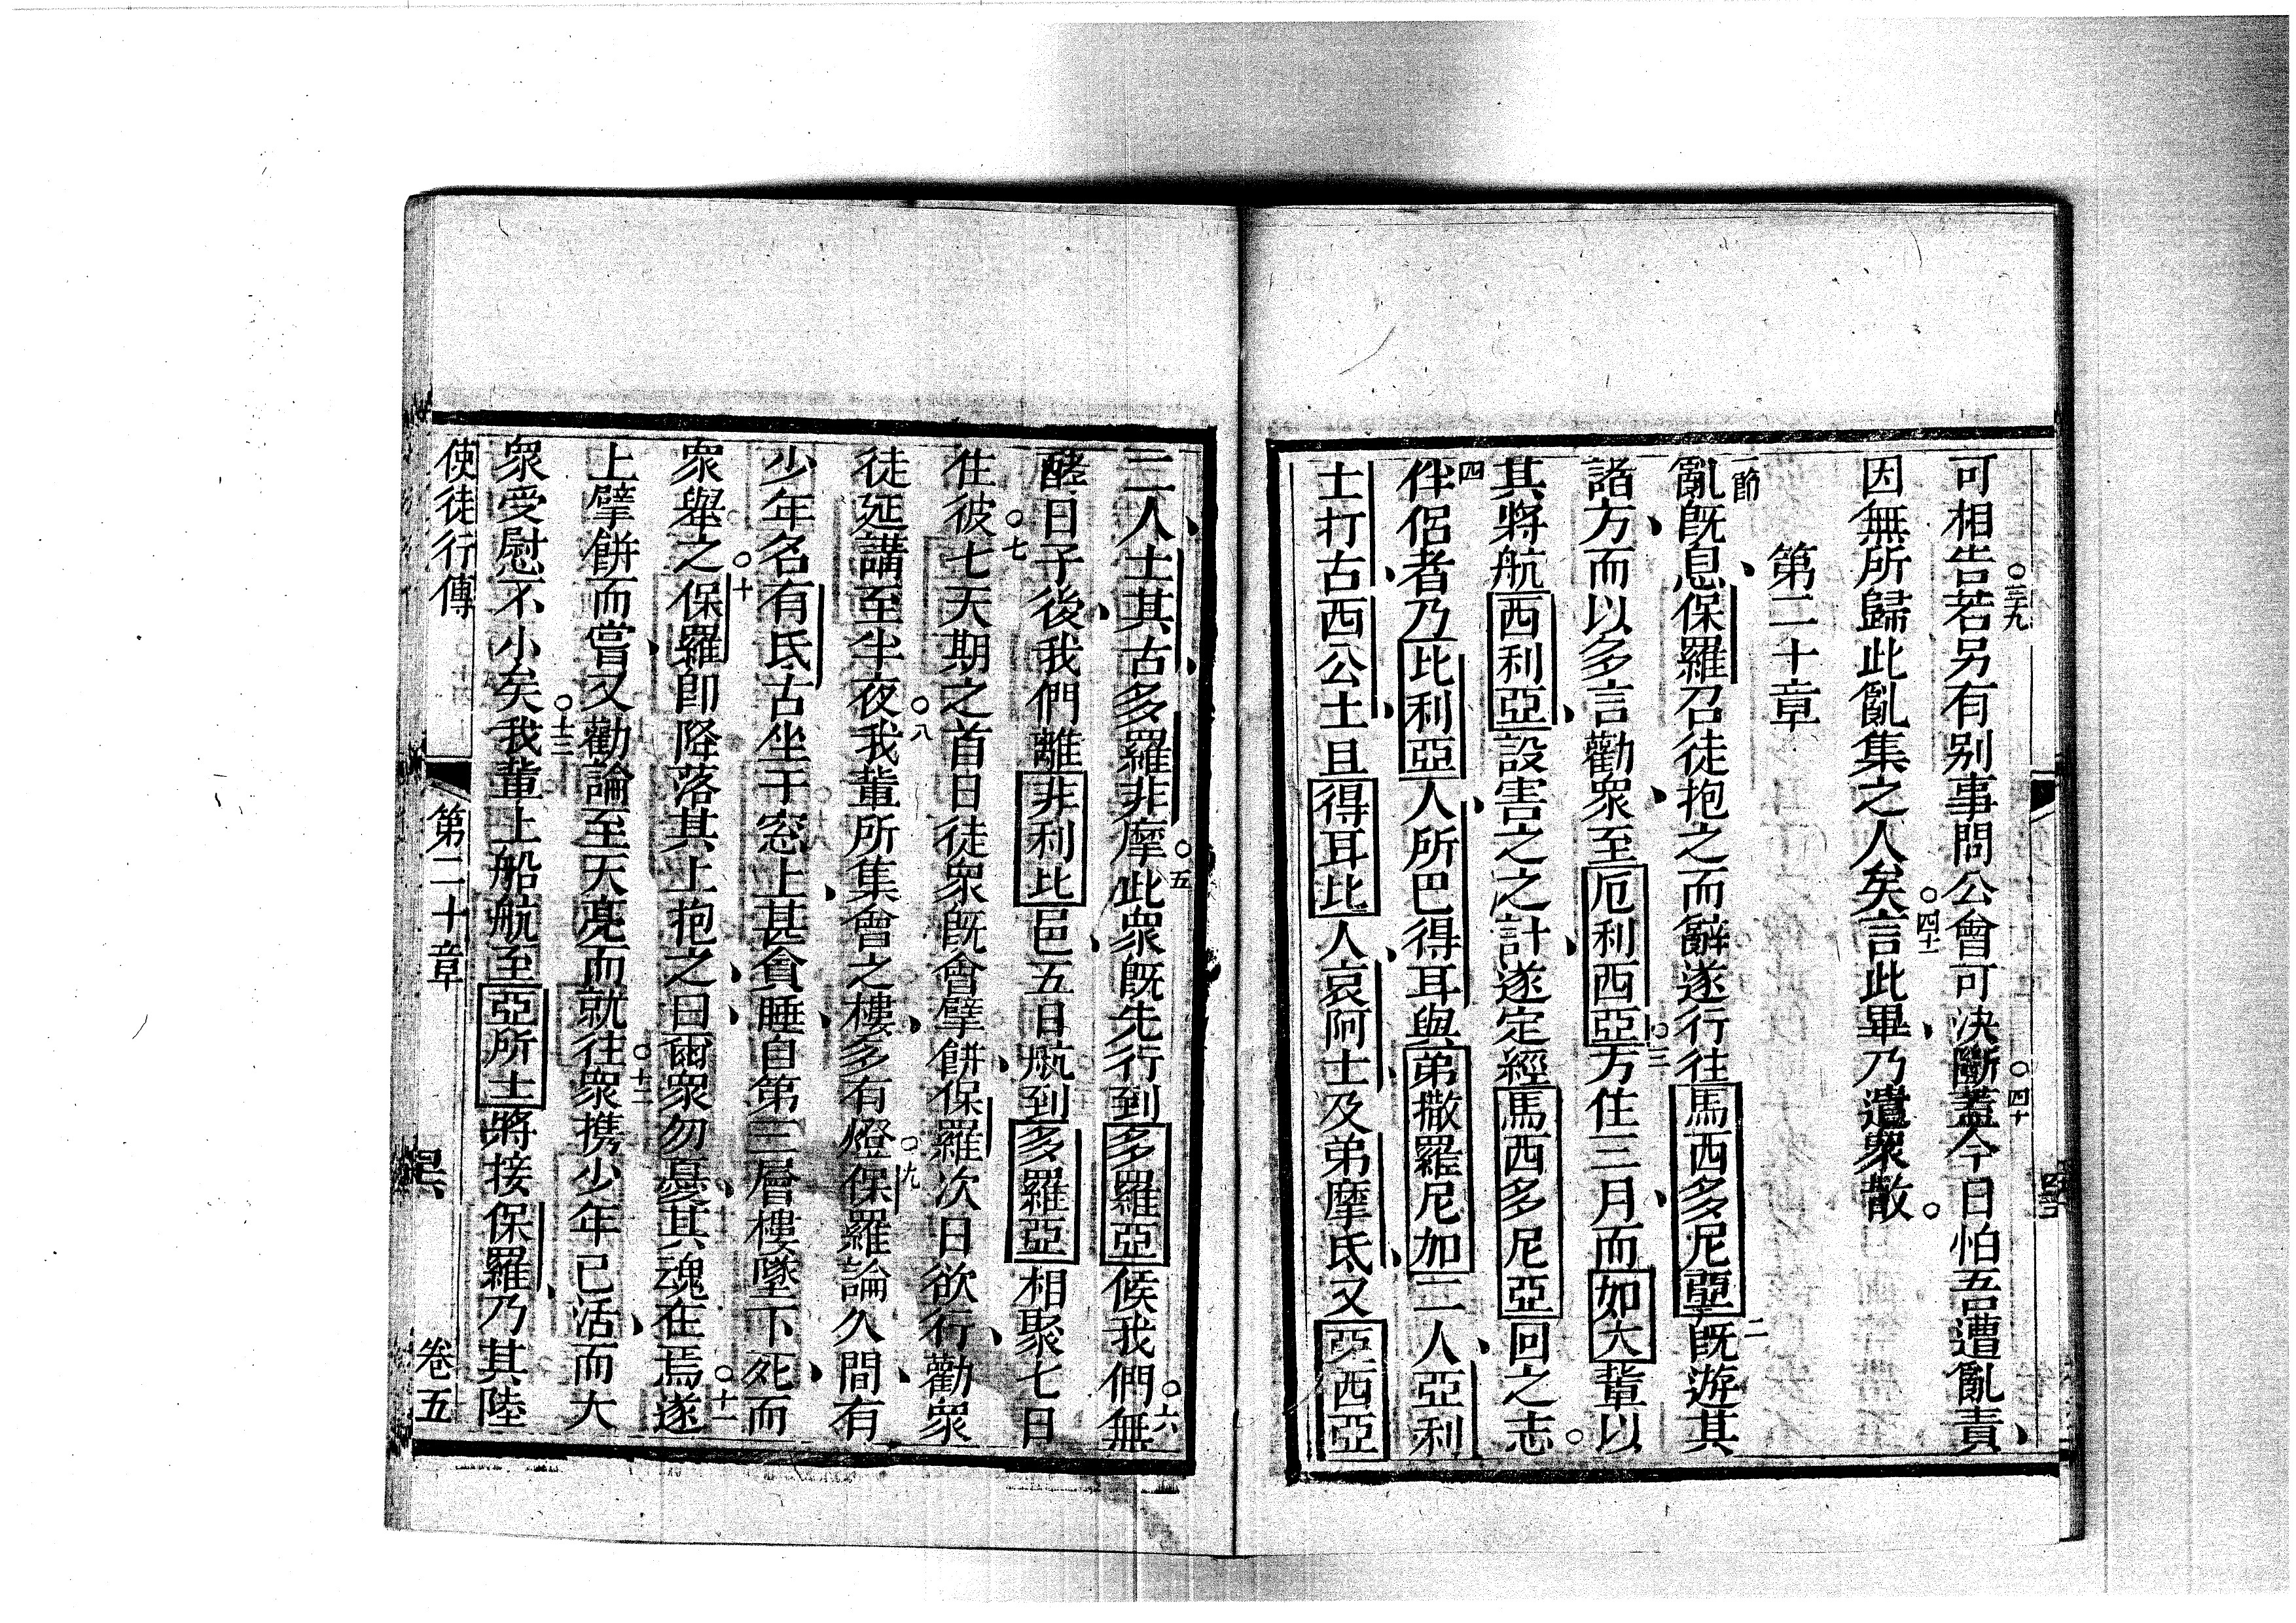 ○三九 ○四十
可相告若另有別事問公會可決斷蓋今日怕吾遭亂責
○四十一
因無所歸此亂集之人矣言此畢乃遣衆散
第二十章
一節 二
亂既息保羅召徒抱之而辭遂行往馬西多尼亞既遊其
○三
諸方而以多言勸衆至厄利西亞方住三月而如大輩以
其將航西利亞設害之之計遂定經馬西多尼亞回之志
四
伴侶者乃比利亞人所巴得耳與弟撒羅尼加二人亞利
士打古西公土且得耳比人哀阿士及弟摩氐又亞西亞
○五 ○六
二人土其古多羅非摩此衆既先行到多羅亞候我們無
酵日子後我們離非利比邑五日航到多羅亞相聚七日
○七
住彼七天期之首日徒衆既會擘餅保羅次日欲行勸衆
○八 ○九
徒延講至半夜我輩所集會之樓多有燈保羅論久間有
少年名有氐古坐于窓上甚貪睡自第三層樓墜下死而
○十 ○十一
衆舉之保羅卽降落其上抱之曰爾衆勿憂其魂在焉遂
○十二
上擘餅而嘗又勸論至天亮而就往衆携少年已活而大
○十三
衆受慰不小矣我輩上船航至亞所士將接保羅乃其陸
使徒行傳 第二十章 卷五